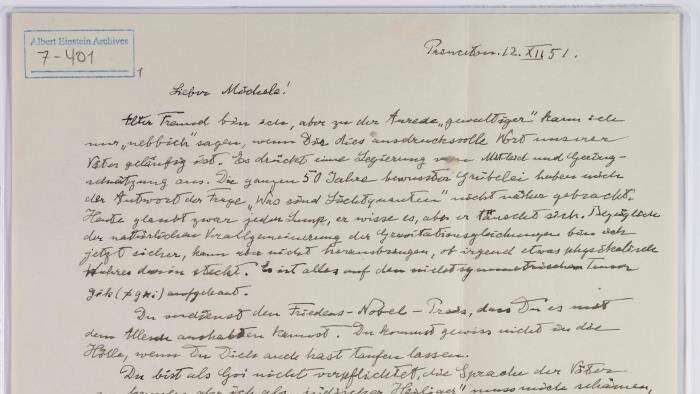 Albert Einstein Archives
7-401
1
Princeton. 12. XII 51.
Lieber Michele!
Alter Freund bin ich, aber zu der Anrede „gewaltiger" kann ich
nur „nebbich" sagen, wenn Dir dies ausdrucksvolle Wort unserer
Väter geläufig ist. Es drückt eine Legierung von Mitleid und Gering-
schätzung aus. Die ganzen 50 Jahre bewusster Grübelei haben mich
der Antwort der Frage „Was sind Lichtquanten" nicht näher gebracht.
Heute glaubt zwar jeder Lump, er wisse es, aber er täuscht sich. Bezüglich
der natürlichen Verallgemeinerung der Gravitationsgleichungen bin ich
jetzt sicher, kann aber nicht herausbringen, ob irgend etwas physikalisch
Wahres darin steckt. Es ist alles auf den nichtsymmetrischen Tensor
gik (≠ gki) aufgebaut.
Du verdienst den Friedens-Nobel-Preis, dass Du es mit
dem Allem aushalten kannst. Du kommst gewiss nicht in die
Hölle, wenn Du Dich auch hast taufen lassen.
Du bist als Goi nicht verpflichtet, die Sprache der Väter
aber ich als „jüdischer Heiliger" muss mich schämen,